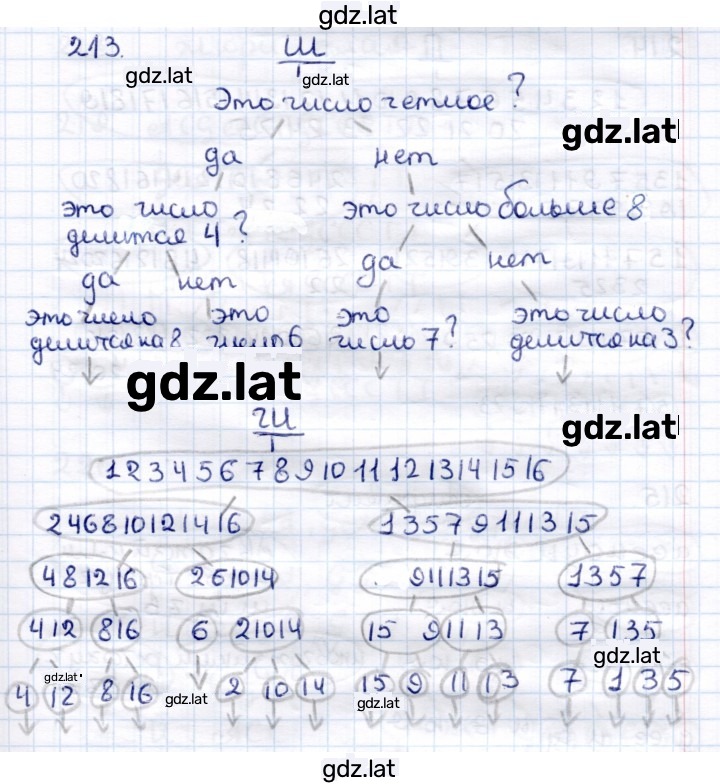 gdz.lat
213. Ш
gdz.lat gdz.lat
Это число четное?
gdz.lat
да нет
это число это число больше 8
делится 4?
да нет да нет
это число это это это число
делится на 8 число 6 число 7? делится на 3?
gdz.lat
ЧИ
gdz.lat
1 2 3 4 5 6 7 8 9 10 11 12 13 14 15 16
2 4 6 8 10 12 14 16 1 3 5 7 9 11 13 15
4 8 12 16 2 6 10 14 9 11 13 15 1 3 5 7
4 12 8 16 6 2 10 14 15 9 11 13 7 1 3 5
gdz.lat
gdz.lat
4 12 8 16 2 10 14 15 9 11 13 7 1 3 5
gdz.lat gdz.lat
gdz.lat